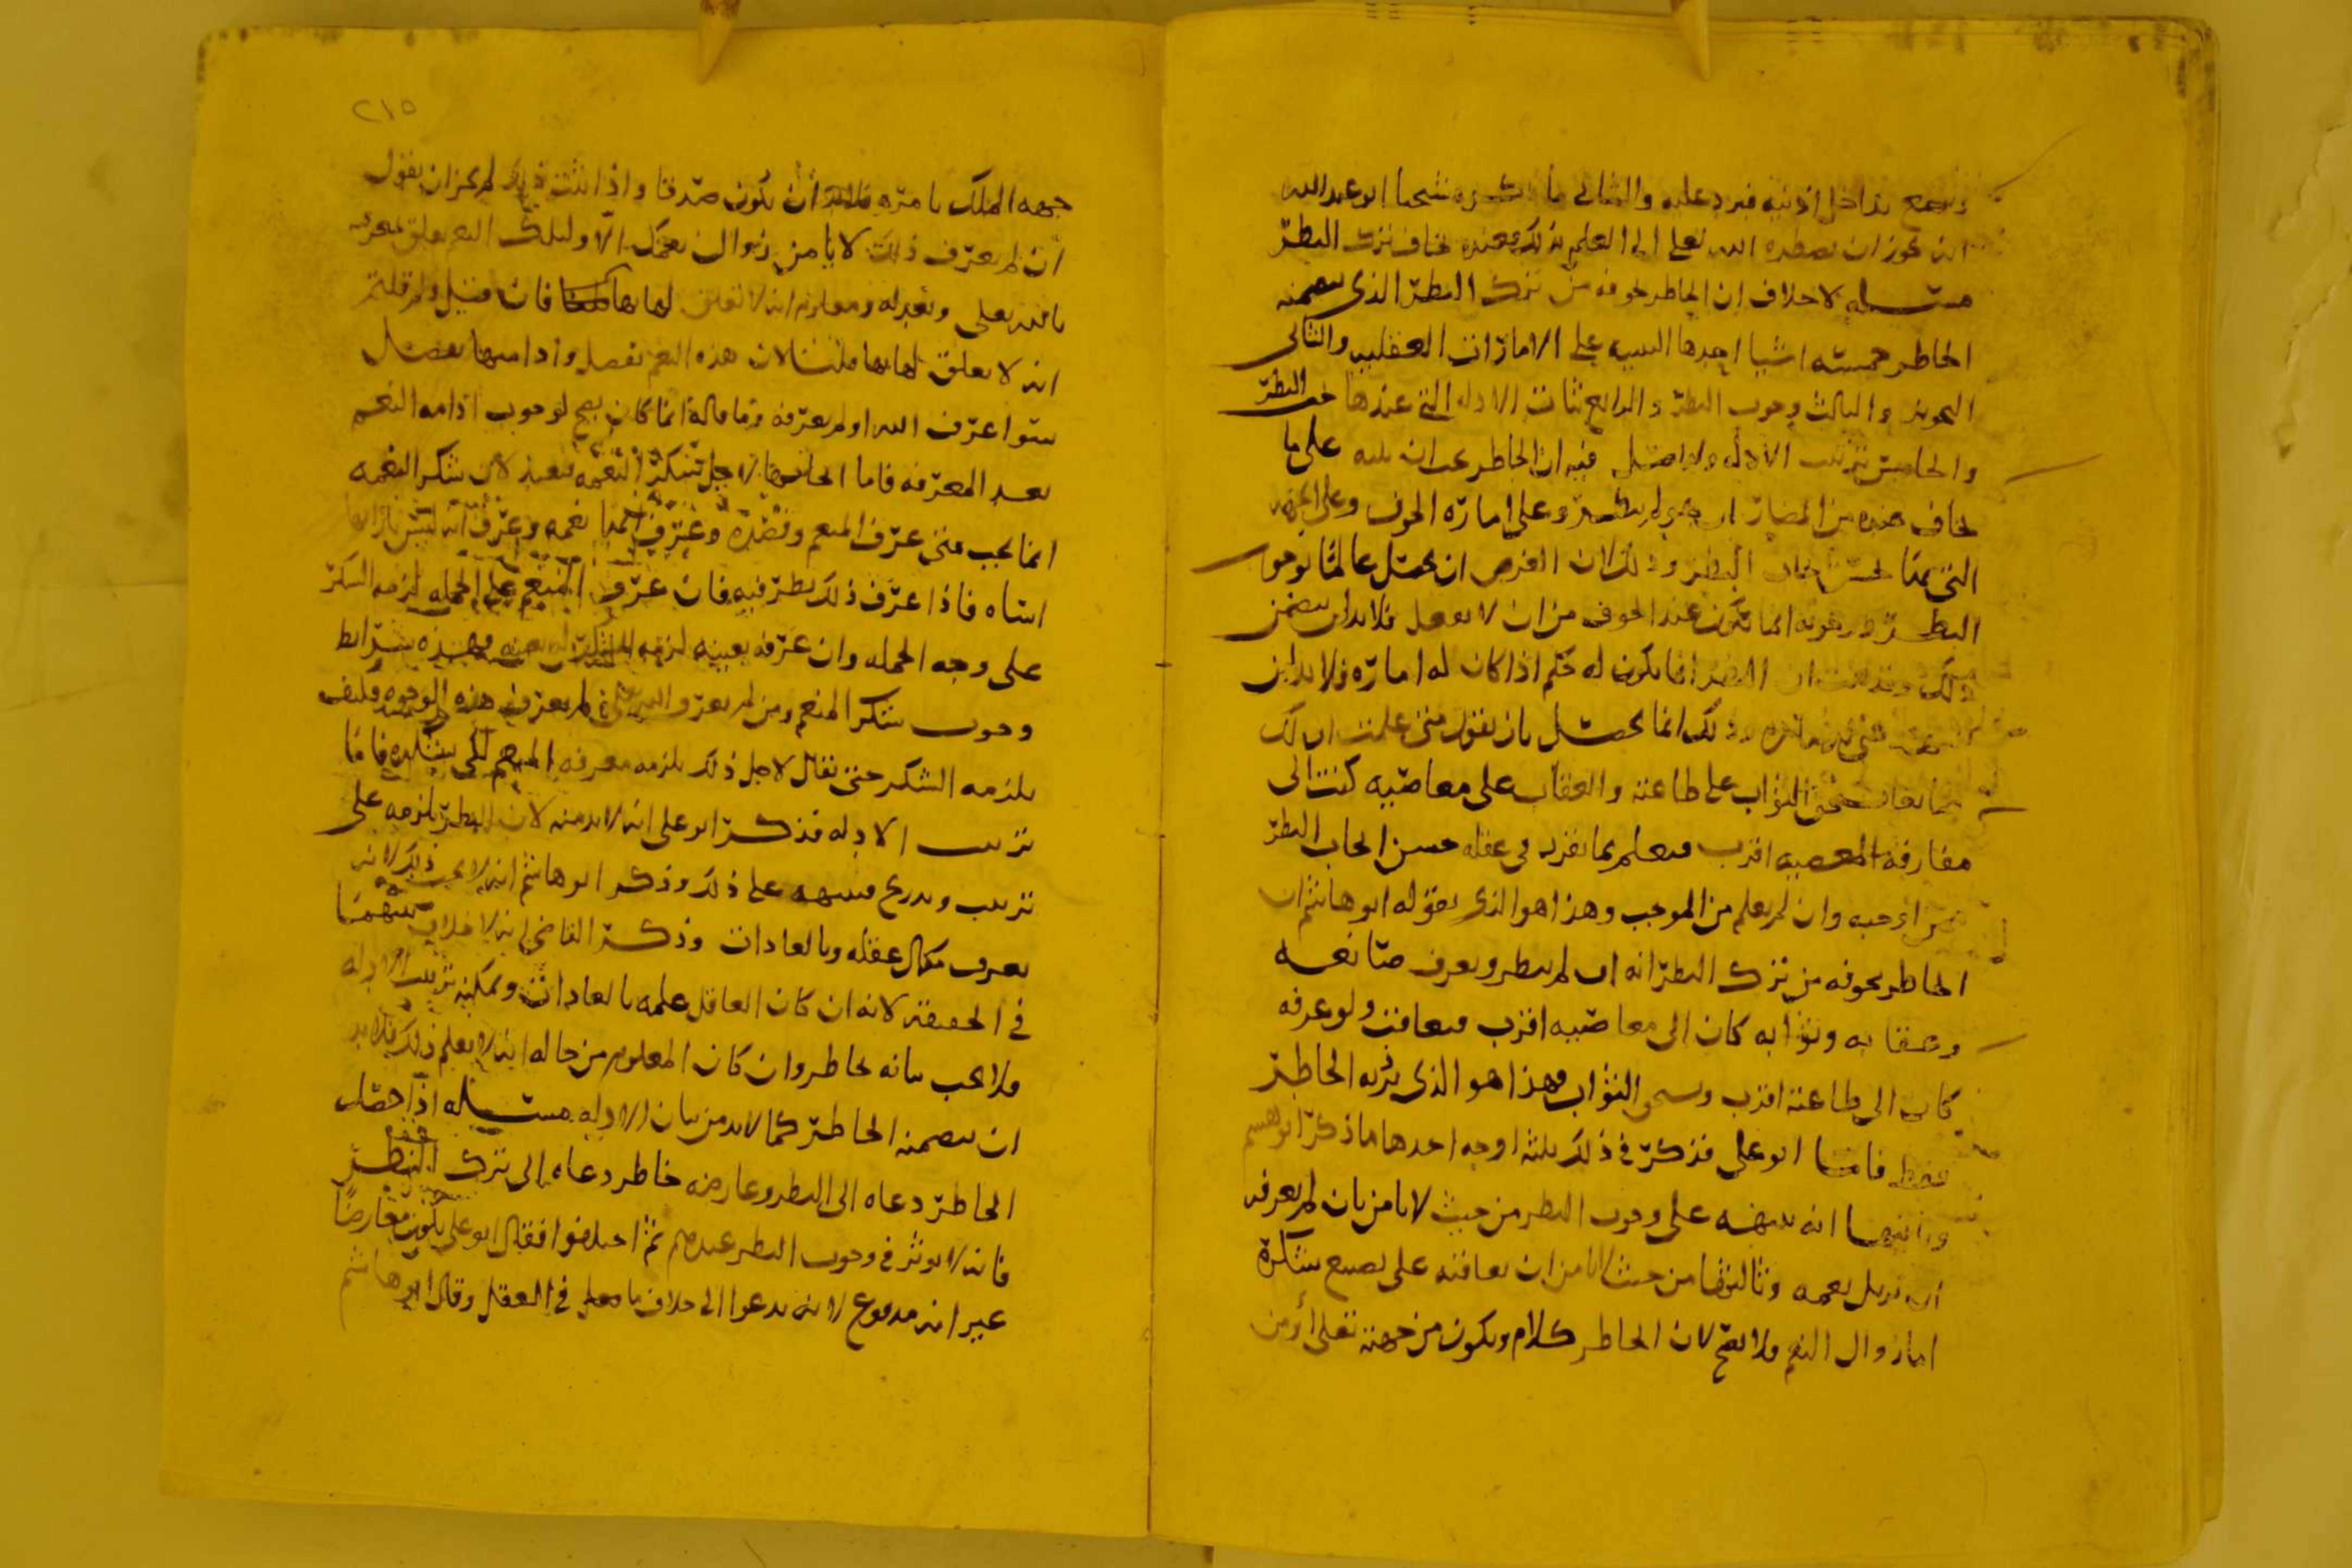 ويسمع بداخل اذنيه فيرد عليه والثاني ما ذكره شيخنا ابو عبدالله
انه يجوز ان يضطره الله تعلى الى العلم بذلك فعنده يخاف ترك النظر
مسئله لا خلاف ان الخاطر يخوفه من ترك النظر الذي يتضمنه
الخاطر خمسه اشيا احدها التنبيه على الامارات العقليه والثاني
التخويف والثالث وجوب النظر والرابع بيان الادله التي عندها يجب النظر
والخامس ترتيب الادله ولا فيه ان الخاطر يجب ان ينبه على ما
يخاف عنده من المضار ان لم ينظر وعلى اماره الخوف وعلى الجهه
التي منها يحسن ايجاب النظر وذلك لان الغرض ان يحصل عالما بوجوب
النظر ووجوبه انما يكون عند الخوف من ان لا يفعل فلا بد ان يتضمن
ذلك وقد ثبت ان انما يكون له حكم اذا كان له اماره فلا بد ان
وذلك انما يحصل بان يقول متى علمت ان لك
صانعا الثواب على طاعته والعقاب على معاصيه كنت الى
مفارقه المعصيه اقرب فيعلم بما تقرر في عقله حسن ايجاب النظر
ممن اوجبه وان لم يعلم من الموجب وهذا هو الذي يقوله ابو هاشم ان
الخاطر يخوفه من ترك النظر انه ان لم ينظر ويعرف صانعه
وعقابه وثوابه كان الى معاصيه اقرب فيعاقب ولو عرفه
كان الى طاعته اقرب ويستحق الثواب فهذا هو الذي يرد به الخاطر
فقط فاما ابو علي فذكر في ذلك ثلثه اوجه احدها ما ذكر ابو هاشم
وثانيها انه ينبهه على وجوب النظر من حيث لا يامن بان لم يعرفه
ان يزيل نعمه وثالثها من حيث لا يامن ان يعاقبه على تضييع شكره
اما زوال النعم فلا يصح لان الخاطر كلام ويكون من جهته تعلى او من
٢١٥
جهه الملك بامره فلابد ان يكون صدقا واذا ثبت ذلك لم يجز ان يقول
ان لم يعرف ذلك لا يامن زوال نعمك الا ولتلك النعم تعلق بمعرفته
بالله تعلى وتعبد له ومعلوم انه لا تعلق لها بها فان قيل ولم قلتم
انه لا يعلق لها بها قلنا لان هذه النعم تفضل وادامتها تفضل
سوا عرف الله او لم يعرفه وما قاله انما كان يصح لو وجب ادامه النعم
بعد المعرفه فاما لاجل شكر النعمه فبعيد لان شكر النعمه
انما يجب متى عرف المنعم وقصده وعرف نعمه وعرف انه ليس بازايها
اساه فاذا عرف ذلك نظر فيه فان عرف المنعم على الجمله لزمه الشكر
على وجه الجمله وان عرفه بعينه لزمه الشكر له بعينه فهذه شرائط
وجوب شكر المنعم ومن لم يعرف الله تعلى لم يعرف هذه الوجوه فكيف
يلزمه الشكر حتى يقال لاجل ذلك يلزمه معرفه المنعم لكي يشكره فاما
ترتيب الادله فذكر ابو على انه لابد منه لان النظر يلزمه على
ترتيب وتدريج فينبهه على ذلك وذكر ابو هاشم انه لا يجب ذلك لانه
يعرف بكمال عقله وبالعادات وذكر القاضي انه لا خلاف بينهما
في الحقيقه لانه ان كان العاقل علمه بالعادات ويمكنه ترتيب الادله
فلا يجب بيانه بخاطر وان كان المعلوم من حاله انه لا يعلم ذلك فلابد
ان يتضمنه الخاطر كما لابد من بيان الادله مسئله اذا حصل
الخاطر دعاه الى النظر وعارضه خاطر دعاه الى ترك النظر
فانه لا يوثر في وجوب النظر عندهم ثم اختلفوا فقال ابو على يكون معارضا
غير انه مدفوع لانه يدعوا الى خلاف ما في العقل وقال ابو هاشم